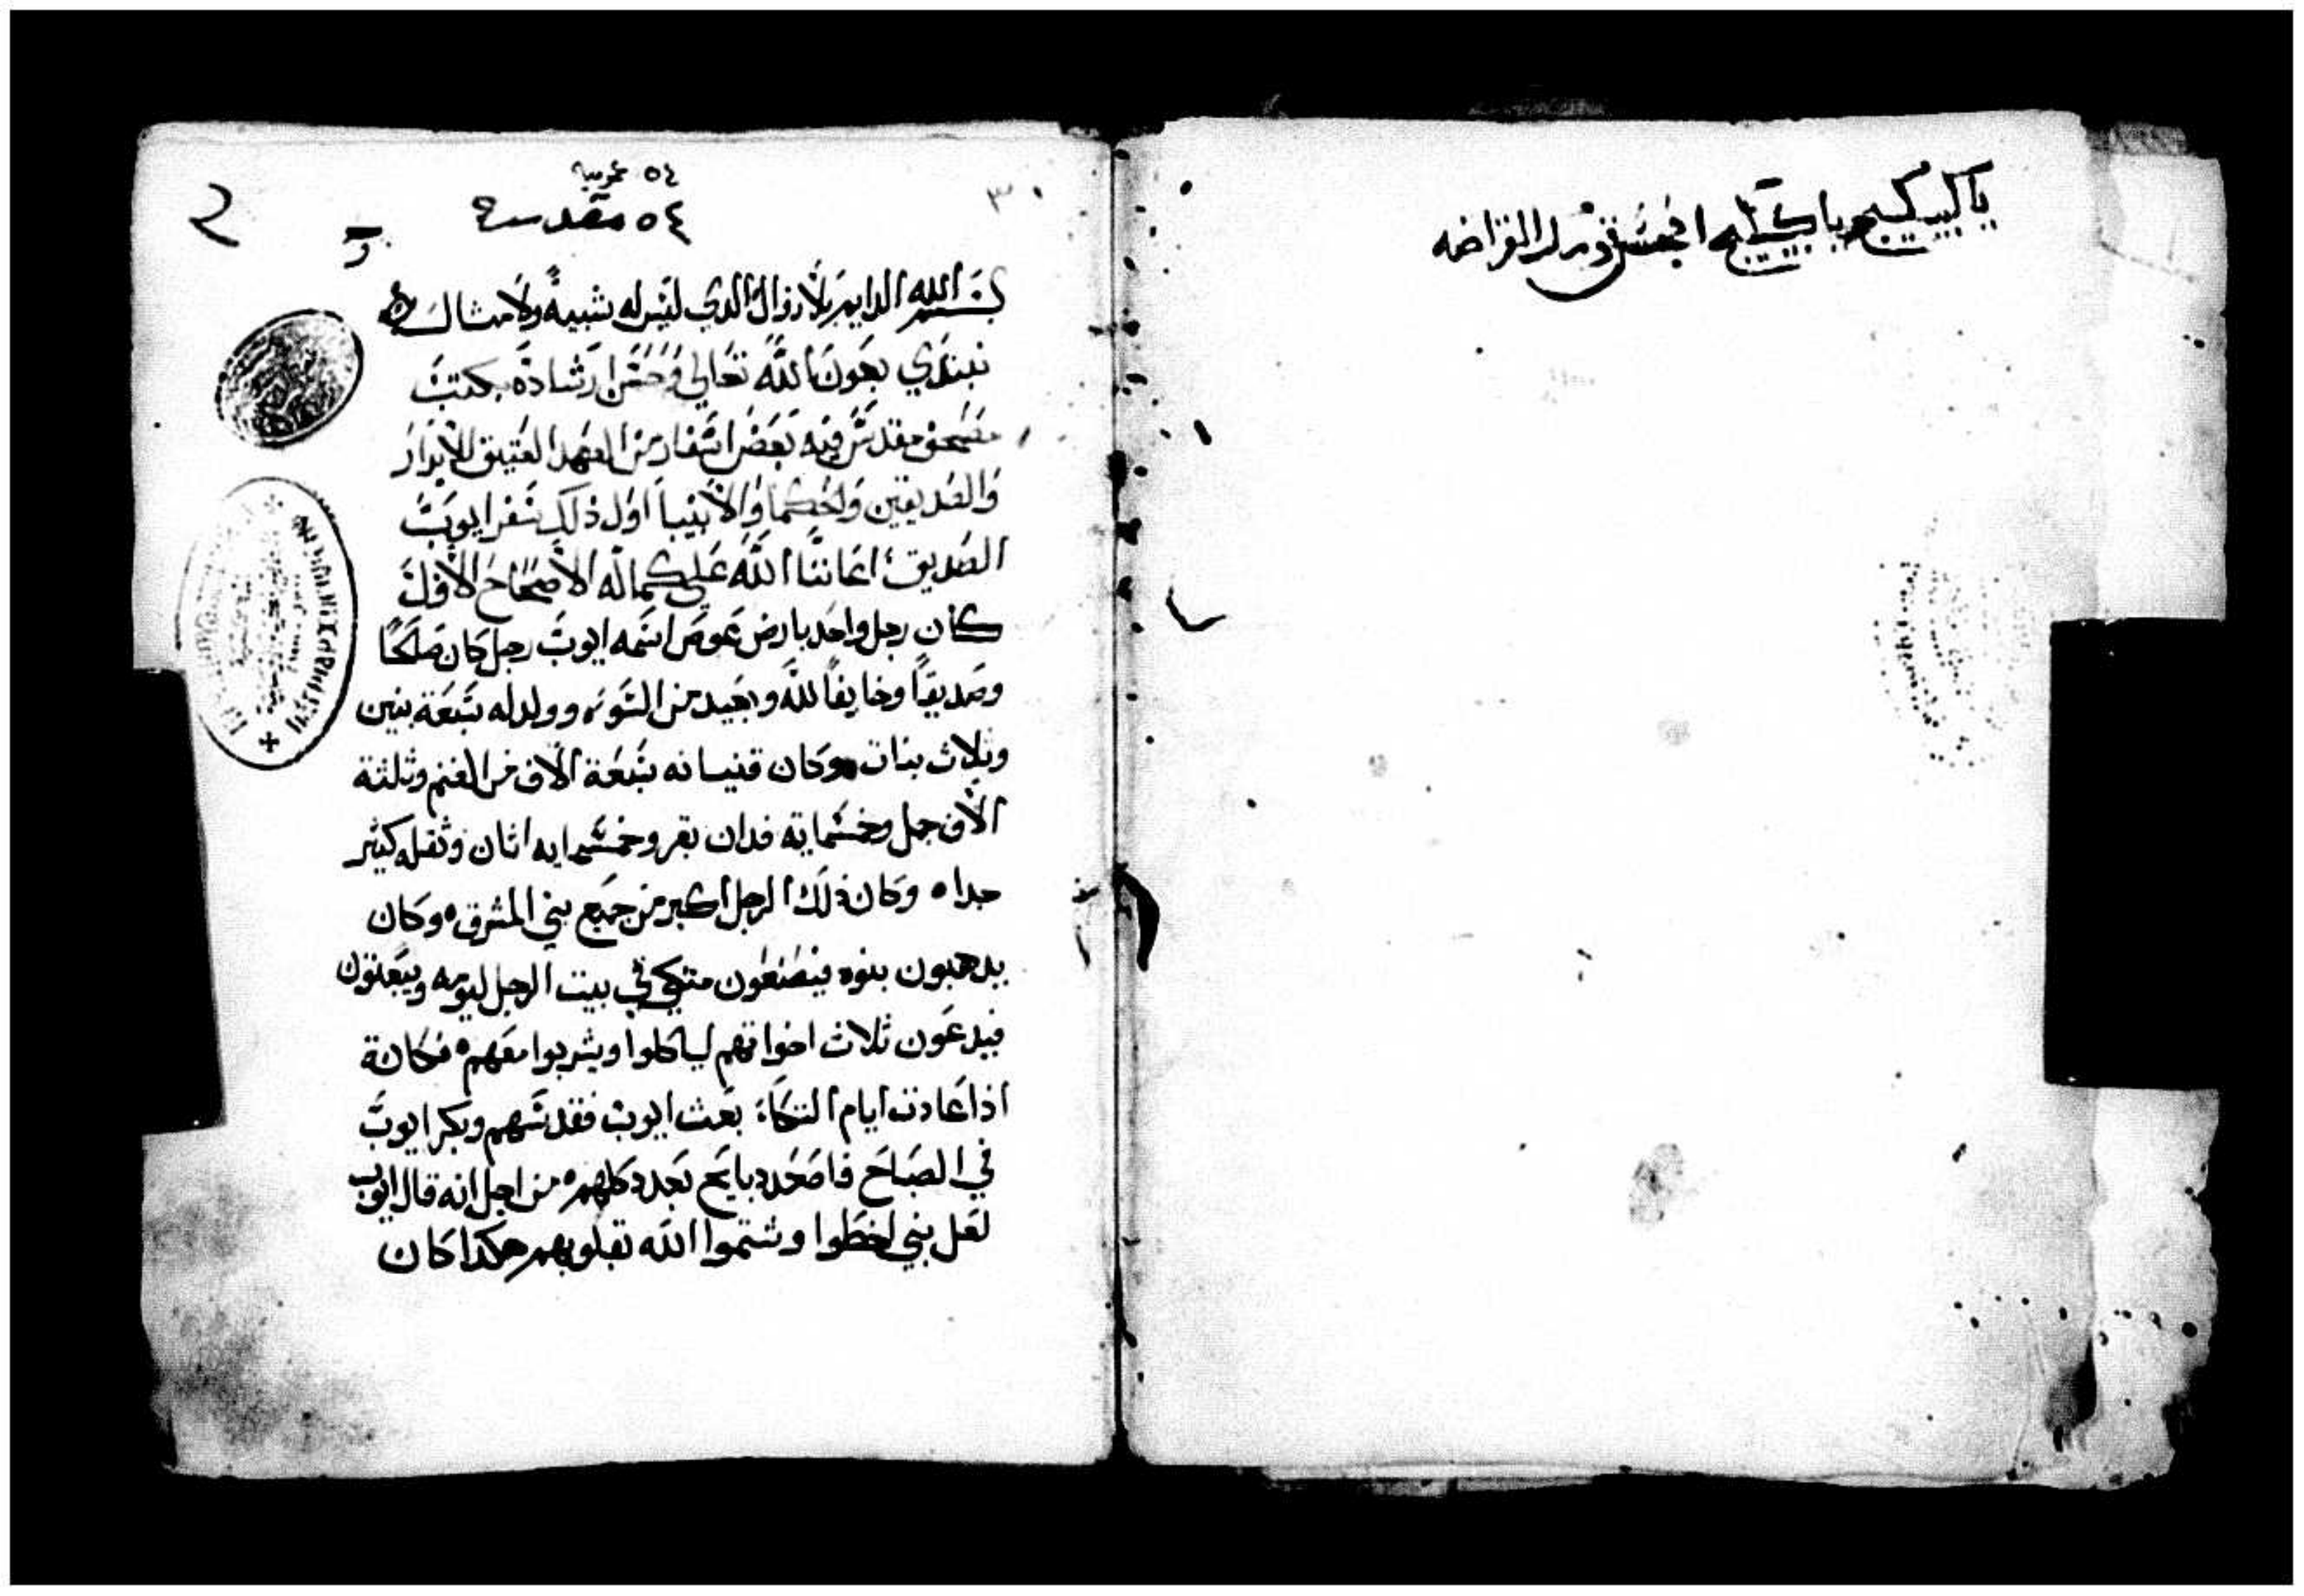 يا كبيكج يا كبيكج احفس الورق من القراضه
٥٤ عمومية
٥٤ مقدسة
بسم الله الدايم بلا زوال الدي ليس له شبيه ولا مثال
نبتدي بعون الله تعالى وحسن ارشاده بكتب
مصحف مقدس فيه بعض اسفار من العهد العتيق للابرار
والصديقين والحكما والانبيا اول ذلك سفر ايوب
الصديق اعاننا الله على كماله الاصحاح الاول
كان رجل واحد بارض عوص اسمه ايوب رجل كان صالحًا
وصديقًا وخايفًا لله وبعيد من السوء وولد له سبعة بنين
وثلاث بنات وكان قنيانه سبعة الاف من الغنم وثلثة
الاف جمل وخسماية فدان بقر وخمسمايه اتان وثقله كثير
جدا ٥ وكان ذلك الرجل اكبر من جميع بني المشرق ٥ وكان
يدهبون بنوه فيصنعون متكي في بيت الرجل ليومه ويبعتون
فيدعون ثلاث اخواتهم لياكلوا ويشربوا معهم ٥ فكانة
اذا عادت ايام التكاة بعث ايوب فقدسهم وبكر ايوب
في الصباح فاصعد دبايح بعدد كلهم ٥ من اجل انه قال ايوب
لعل بني اخطوا وشتموا الله بقلوبهم هكدا كان